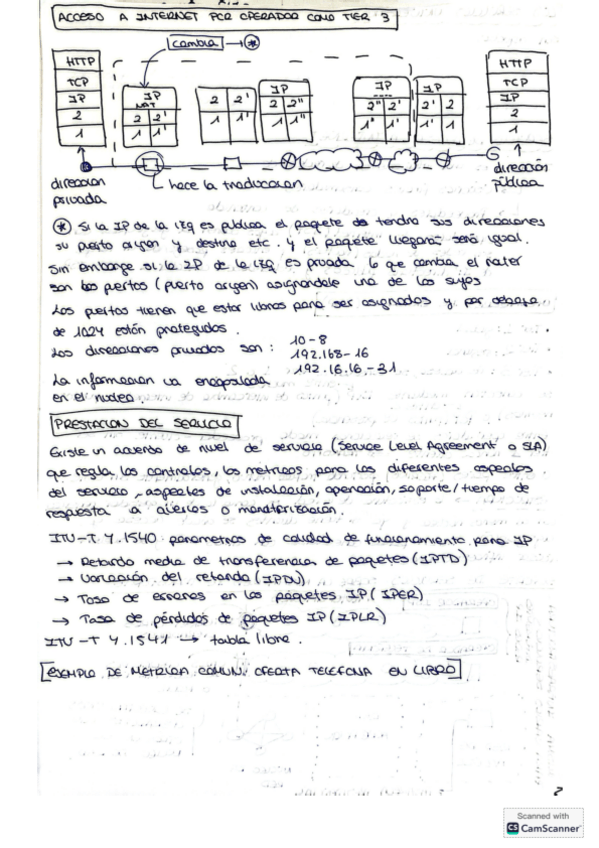 ACCESO A INTERNET POR OPERADOR COMO TIER 3
cambia → *
HTTP
TCP
IP
2
1
IP
NAT
2 2'
1 1'
2 2'
1 1'
IP
2 2"
1' 1"
IP
2" 2'
1" 1'
IP
2' 2
1' 1
HTTP
TCP
IP
2
1
direccion
privada
hace la traduccion
G
dirección
pública
* Si la IP de la izq es publica el paquete tendra sus direcciones
su puerto origen y destino etc. y el paquete llegara será igual.
Sin embargo si la IP de la izq es privada lo que cambia el router
son los puertos (puerto origen) asignandole uno de los suyos
Los puertos tienen que estar libres para ser asignados y por debajo
de 1024 están protegidos.
Las direcciones privadas son : 10-8
192.168-16
192.16.16.-31
La informacion va encapsulada
en el nucleo.
PRESTACION DEL SERVICIO
Existe un acuerdo de nivel de servicio (Service Level Agreement o SLA)
que regla los controles, las metricas para los diferentes aspectos
del servicio, aspectos de instalación, operación, soporte/tiempo de
respuesta a averios o monitorización.
ITU-T Y.1540 parametros de calidad de funcionamiento para IP
→ Retardo medio de transferencia de paquetes (IPTD)
→ Variación del retardo (IPDV)
→ Tasa de errores en los paquetes IP (IPER)
→ Tasa de pérdidas de paquetes IP (IPLR)
ITU-T Y.1541 → tabla libre.
[EJEMPLO DE METRICA COMUN: OFERTA TELEFONIA EN LIBRO]
2
Scanned with
CS CamScanner